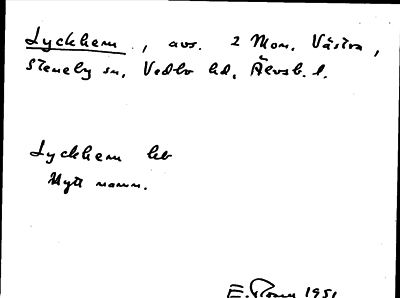 Lyckhem, avs. 2 Mon. Västra,
Steneby sn, Vedbo hd, Älvsb. l.
Lyckhem kb
Nytt namn.
E. 1951